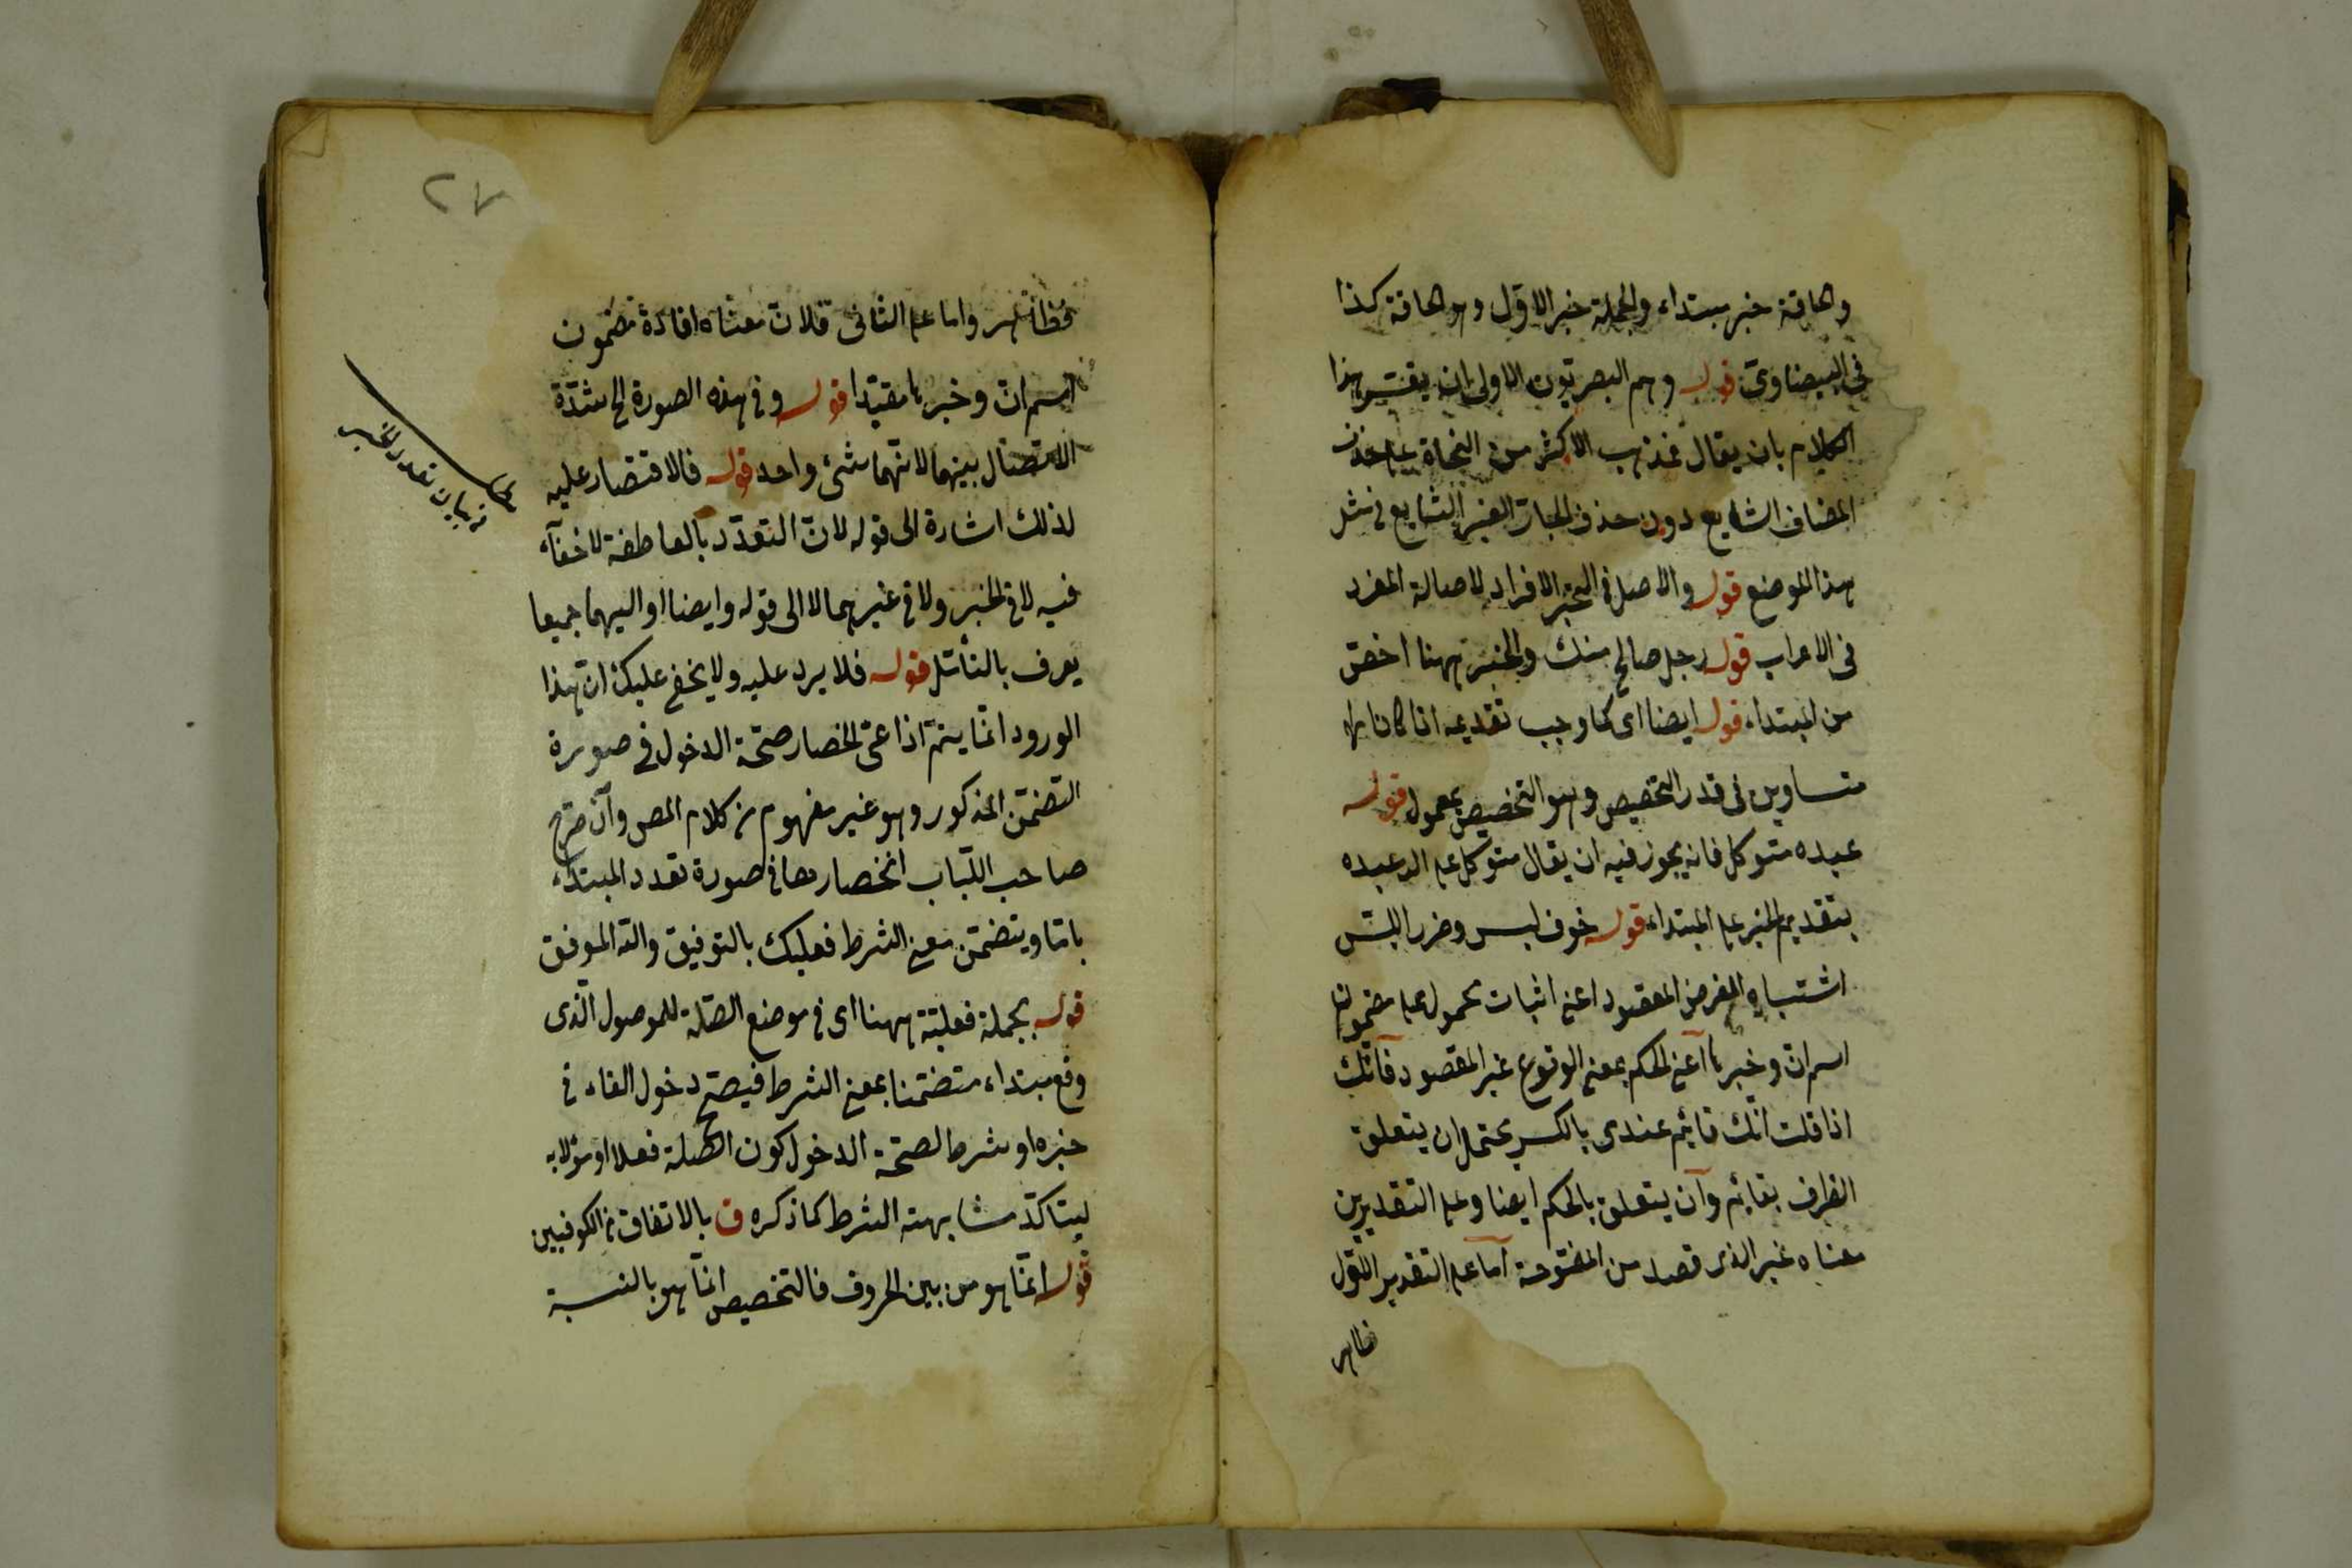 والحاقة خبر مبتداء والجملة خبر الاول وهو الحاقة كذا
فى البيضاوى قوله وهم البصريون الاولى ان يفسر هذا
الكلام بان يقال فذهب الاكثر من النحاة على حذف
المضاف الشايع دون حذف الجار الغير الشايع فى مثل
هذا الموضع قوله والاصل فى الخبر الافراد لاصالة المفرد
فى الاعراب قوله رجل صالح منك والخبر ههنا اخص
من المبتداء قوله ايضا اى كما وجب تقديمه اذا كانا
متساوين فى قدر التخصيص وهو التخصيص بمعمول قوله
عبده متوكل فانه يجوز فيه ان يقال متوكل على الله عبده
بتقديم الخبر على المبتداء قوله خوف لبس وضرر اللبس
اشتباه الغرض المقصود اعنى اثبات محمول على مضمون
اسم ان وخبرها اعنى الحكم بمعنى الوقوع غير المقصود فانك
اذا قلت انك قايم عندى بالكسر يحتمل ان يتعلق
الظرف بقائم وان يتعلق بالحكم ايضا وعلى التقديرين
معناه غير الذى قصد من المفتوحة اما على التقدير الاول
ظاهر
٢٧
فظاهر واما على الثانى فلان معناه افادة مضمون
اسم ان وخبرها مقيدا قوله وفى هذه الصورة الخ لشدة
الاتصال بينهما لانهما شئ واحد قوله فالاقتصار عليه
لذلك اشارة الى قوله لان التعدد بالعاطفة لا خفآء
فيه لا فى الخبر ولا فى غيرهما لا الى قوله وايضا او اليهما جميعا
يعرف بالتأمل قوله فلا يرد عليه ولا يخفى عليك ان هذا
الورود انما يتم اذا عى انحصار صحة الدخول فى صورة
التضمن المذكور وهو غير مفهوم من كلام المص وان صرح
صاحب اللباب انحصارها فى صورة تعدد المبتداء
باما ويتضمن معنى الشرط فعليك بالتوفيق والله الموفق
قوله بجملة فعلية ههنا اى فى موضع الصلة للموصول الذى
وقع مبتداء متضمنا بمعنى الشرط فيصح دخول الفاء فى
خبره او شرط لصحة الدخول كون الصلة فعلا او مؤلا به
ليتاكد مشابهته الشرط كما ذكره ق بالاتفاق من الكوفيين
قوله انما هو من بين الحروف فالتخصيص انما هو بالنسبة
فى بيان تعدد الخبر